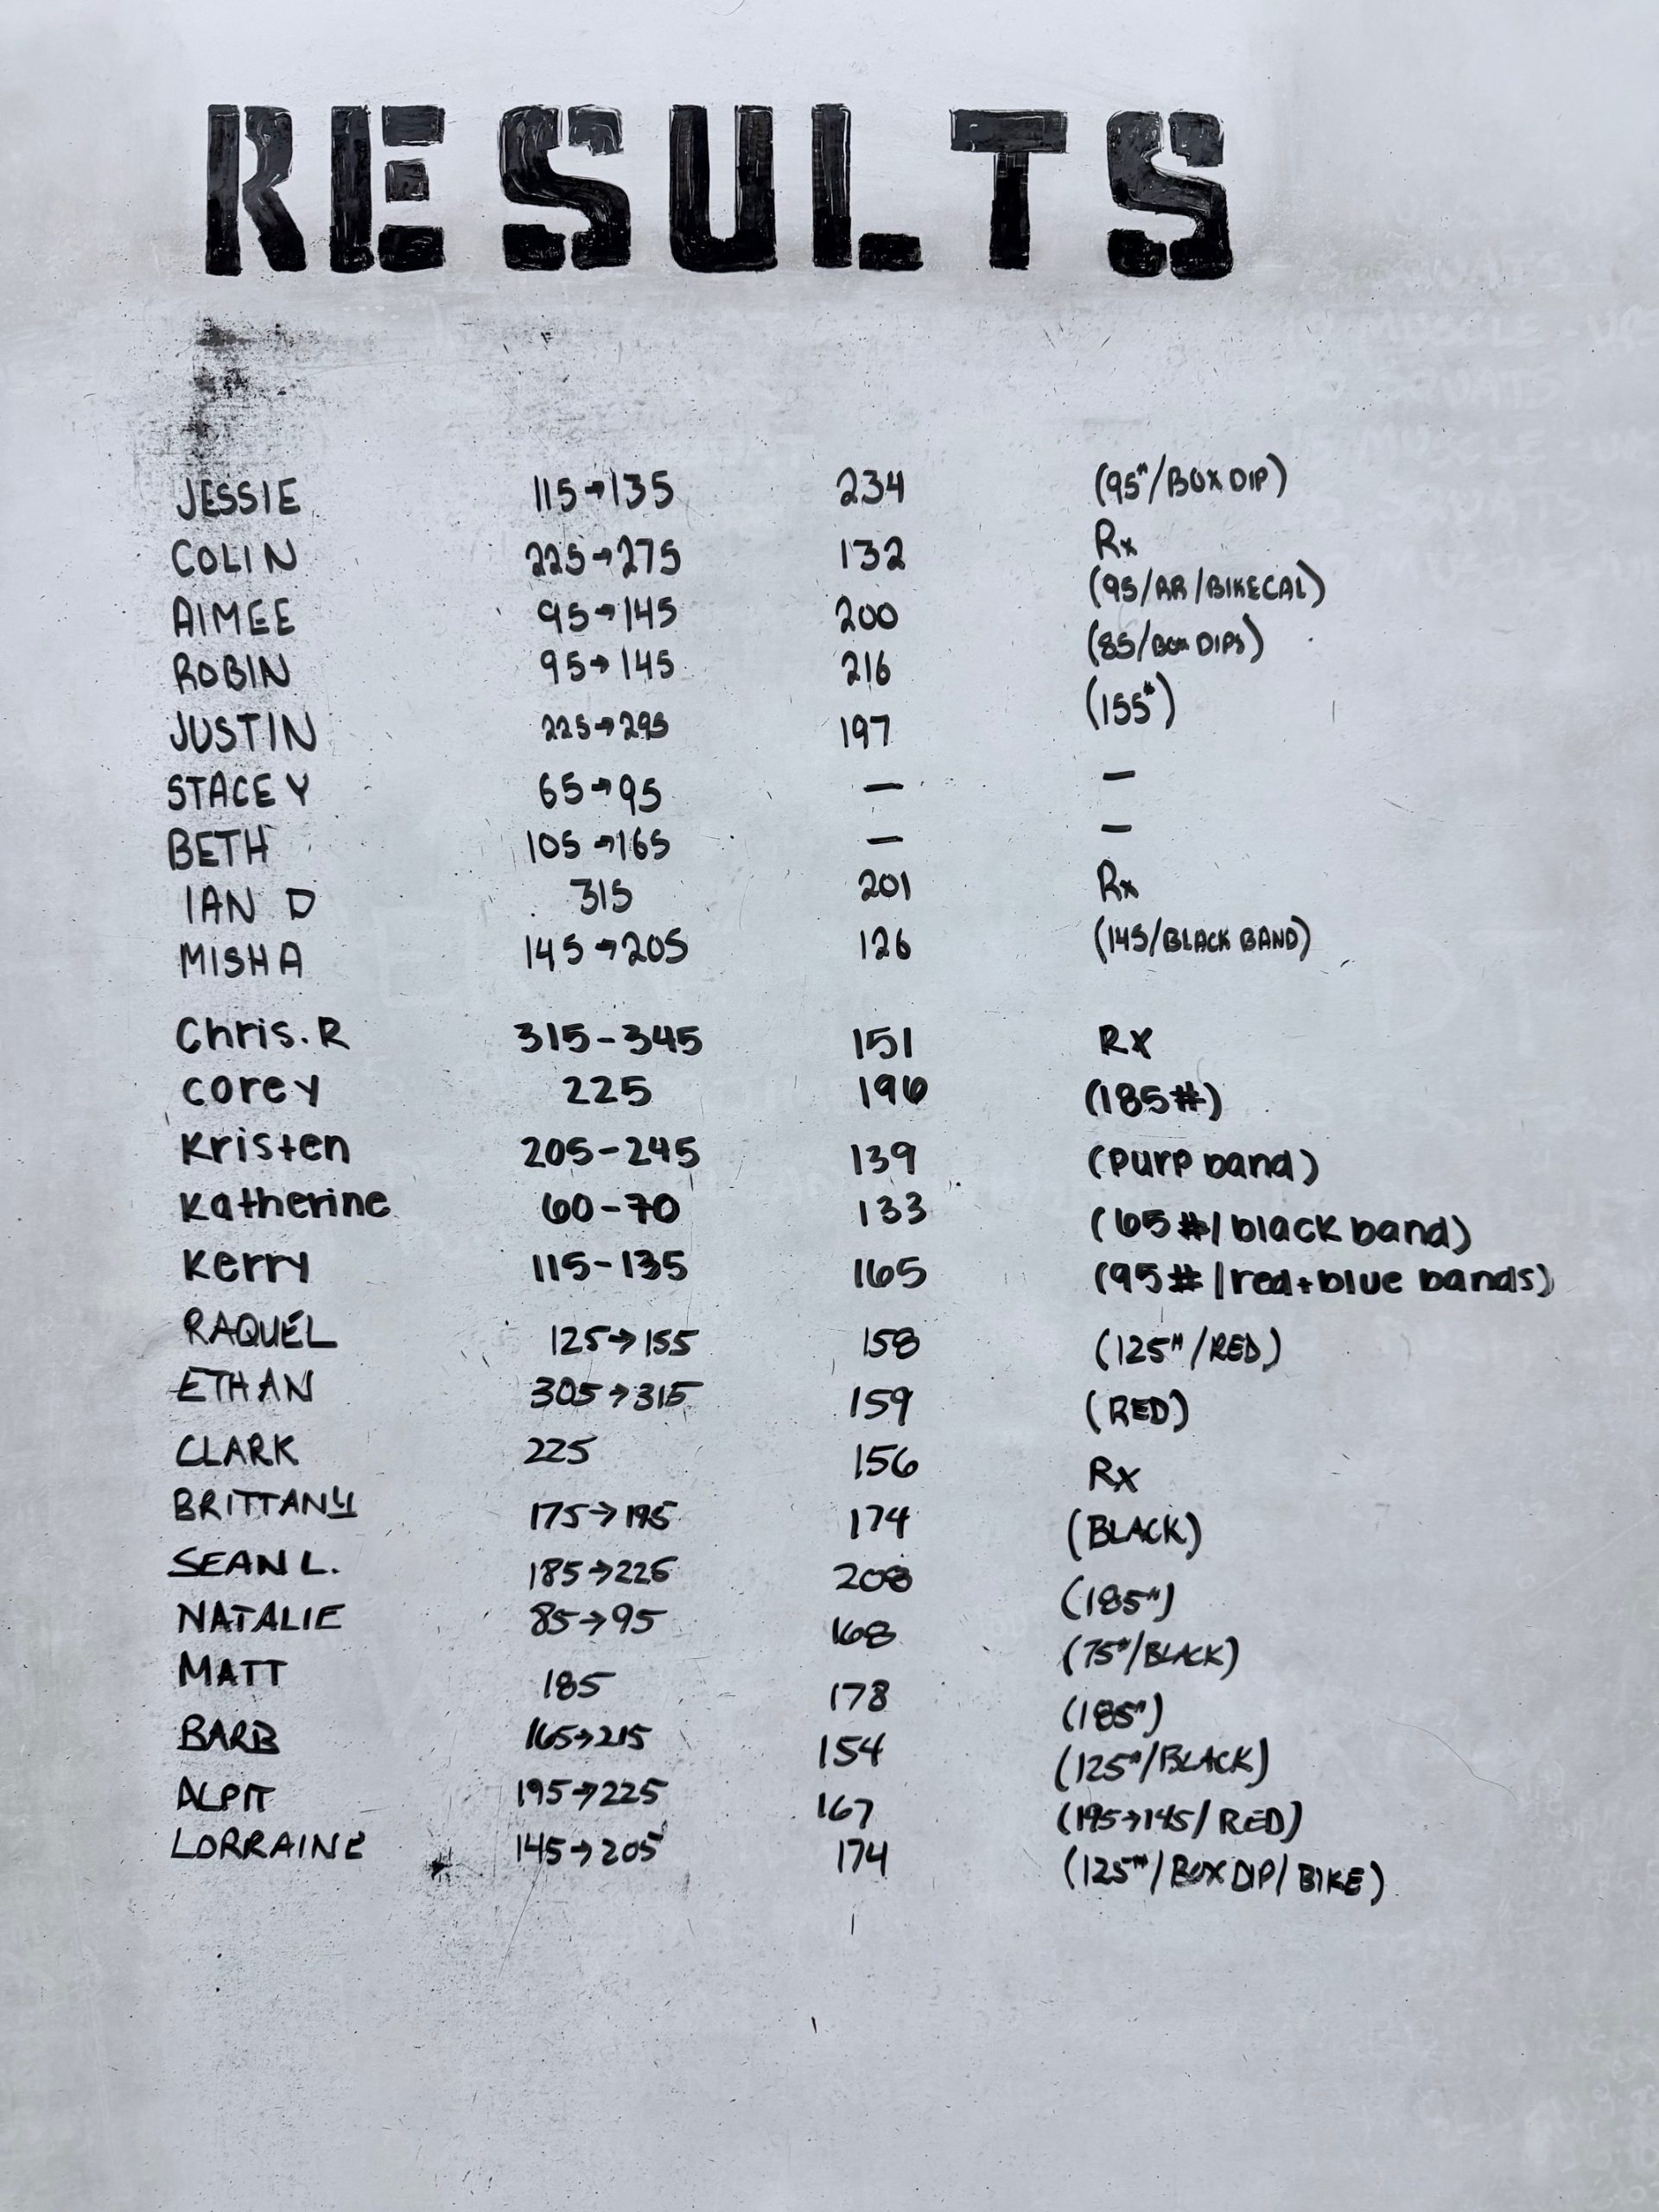 RESULTS
JESSIE 115→135 234 (95#/BOX DIP)
COLIN 225→275 132 Rx
AIMEE 95→145 200 (95/RR/BIKECAL)
ROBIN 95→145 216 (85/BOX DIPS)
JUSTIN 225→295 197 (155#)
STACEY 65→95 — —
BETH 105→165 — —
IAN D 315 201 Rx
MISHA 145→205 126 (145/BLACK BAND)
Chris.R 315-345 151 RX
corey 225 196 (185#)
Kristen 205-245 139 (Purp band)
Katherine 60-70 133 (65#/black band)
Kerry 115-135 165 (95#/red+blue bands)
RAQUEL 125→155 158 (125#/RED)
ETHAN 305→315 159 (RED)
CLARK 225 156 Rx
BRITTANY 175→195 174 (BLACK)
SEAN L. 185→225 208 (185#)
NATALIE 85→95 168 (75#/BLACK)
MATT 185 178 (185#)
BARB 165→215 154 (125#/BLACK)
ALPIT 195→225 167 (195→145/RED)
LORRAINE 145→205 174 (125#/BOX DIP/BIKE)